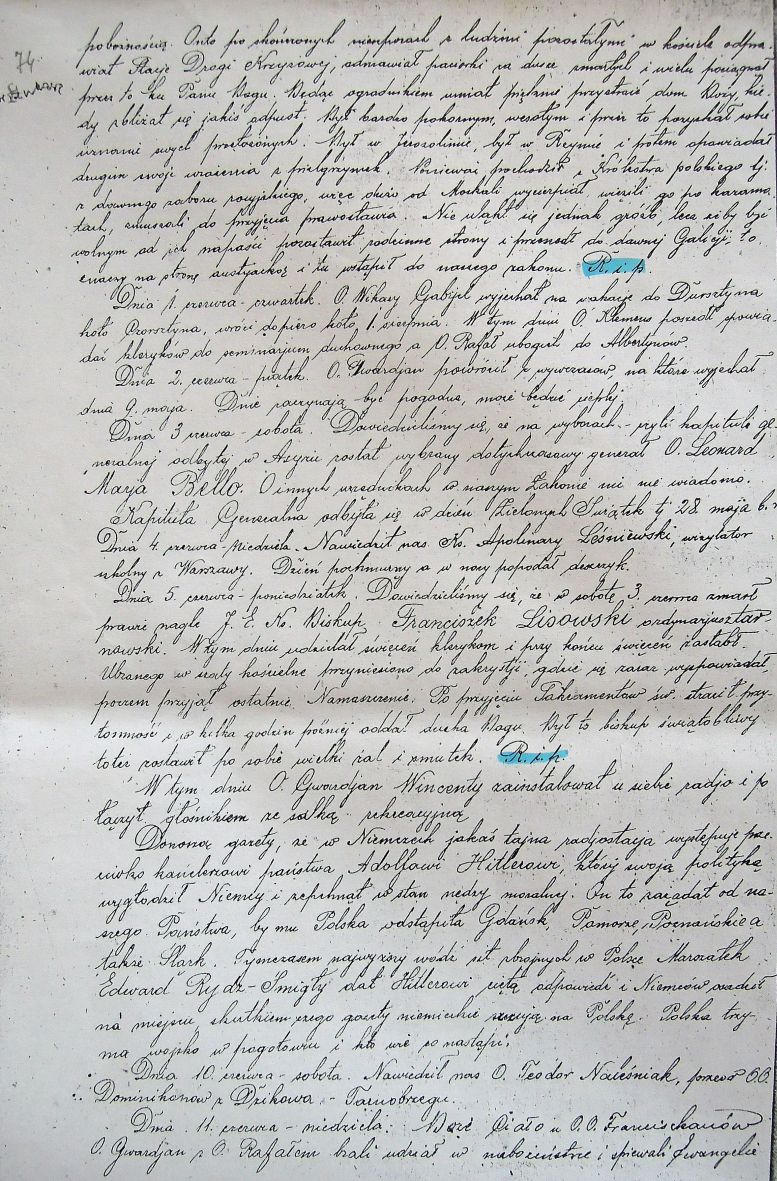 74
pobożnością. Onto po skończonych nieszporach z ludźmi pozostałymi w kościele odpra-
wiał Stacje Drogi Krzyżowej, odmawiał paciorki za dusze zmarłych i wielu pociągnął
przez to ku Panu Bogu. Będąc ogrodnikiem umiał pięknie przystroić dom Boży, kie-
dy zbliżał się jakiś odpust. Był bardzo pokornym, wesołym i przez to pozyskał sobie
uznanie swych przełożonych. Był w Jerozolimie, był w Rzymie i potem opowiadał
drugim swoje wrażenia z pielgrzymek. Ponieważ pochodził z Królestwa polskiego tj.
z dawnego zaboru rosyjskiego, więc dużo od Moskali wycierpiał, więzili go po kazama-
tach, zmuszali do przyjęcia prawosławia. Nie uląkł się jednak gróźb, lecz żeby być
wolnym od ich napaści pozostawił rodzinne strony i przeszedł do dawnej Galicji, to
znaczy na stronę austryacką i tu wstąpił do naszego zakonu. R. i. p.
Dnia 1. czerwca - czwartek. O. Wikary Gabrjel wyjechał na wakacje do Dursztyna
koło Czorsztyna, wróci dopiero koło 1. sierpnia. W tym dniu O. Klemens poszedł spowia-
dać kleryków do seminarjum duchownego a O. Rafał ubogich do Albertynów.
Dnia 2. czerwca - piątek. O. Gwardjan powrócił z wywczasów, na które wyjechał
dnia 9. maja. Dnie zaczynają być pogodne, może będzie cieplej.
Dnia 3 czerwca - sobota. Dowiedzieliśmy się, że na wyborach - czyli kapitule ge-
neralnej odbytej w Asyżu został wybrany dotychczasowy generał O. Leonard
Marja Bello. O innych urzędnikach w naszym Zakonie nic nie wiadomo.
Kapituła Generalna odbyła się w dzień Zielonych Świątek tj 28. maja b. r.
Dnia 4. czerwca - Niedziela. Nawiedził nas Ks. Apolinary Leśniewski, wizytator
szkolny z Warszawy. Dzień pochmurny a w nocy popadał deszczyk.
Dnia 5. czerwca - poniedziałek. Dowiedzieliśmy się, że w sobotę 3. czerwca zmarł
prawie nagle J. E. Ks. Biskup Franciszek Lisowski ordynarjusz tar-
nowski. W tym dniu udzielał święceń klerykom i przy końcu święceń zasłabł.
Ubranego w szaty kościelne przyniesiono do zakrystji, gdzie się zaraz wyspowiadał,
poczem przyjął ostatnie Namaszczenie. Po przyjęciu Sakramentów św. stracił przy-
tomność i w kilka godzin później oddał ducha Bogu. Był to biskup świątobliwy
toteż zostawił po sobie wielki żal i smutek. R. i. p.
W tym dniu O. Gwardjan Wincenty zainstalował u siebie radjo i po-
łączył głośnikiem ze salką rekreacyjną.
Donoszą gazety, że w Niemczech jakaś tajna radjostacja występuje prze-
ciwko kanclerzowi państwa Adolfowi Hitlerowi, który swoją polityką
wygłodził Niemcy i zepchnął w stan nędzy moralnej. On to zażądał od na-
szego Państwa, by mu Polska odstąpiła Gdańsk, Pomorze, Poznańskie a
także Śląsk. Tymczasem najwyższy wódz sił zbrojnych w Polsce Marszałek
Edward Rydz-Śmigły dał Hitlerowi ciętą odpowiedź i Niemców osadził
na miejscu, skutkiem czego gazety niemieckie szczują na Polskę. Polska trzy-
ma wojsko w pogotowiu i kto wie co nastąpi.
Dnia 10. czerwca - sobota. Nawiedził nas O. Teodor Naleśniak, przeor O.O.
Dominikanów z Dzikowa - Tarnobrzegu.
Dnia 11. czerwca - niedziela. Boże Ciało u O.O. Franciszkanów
O. Gwardjan z O. Rafałem brali udział w nabożeństwie i śpiewali Ewangelie